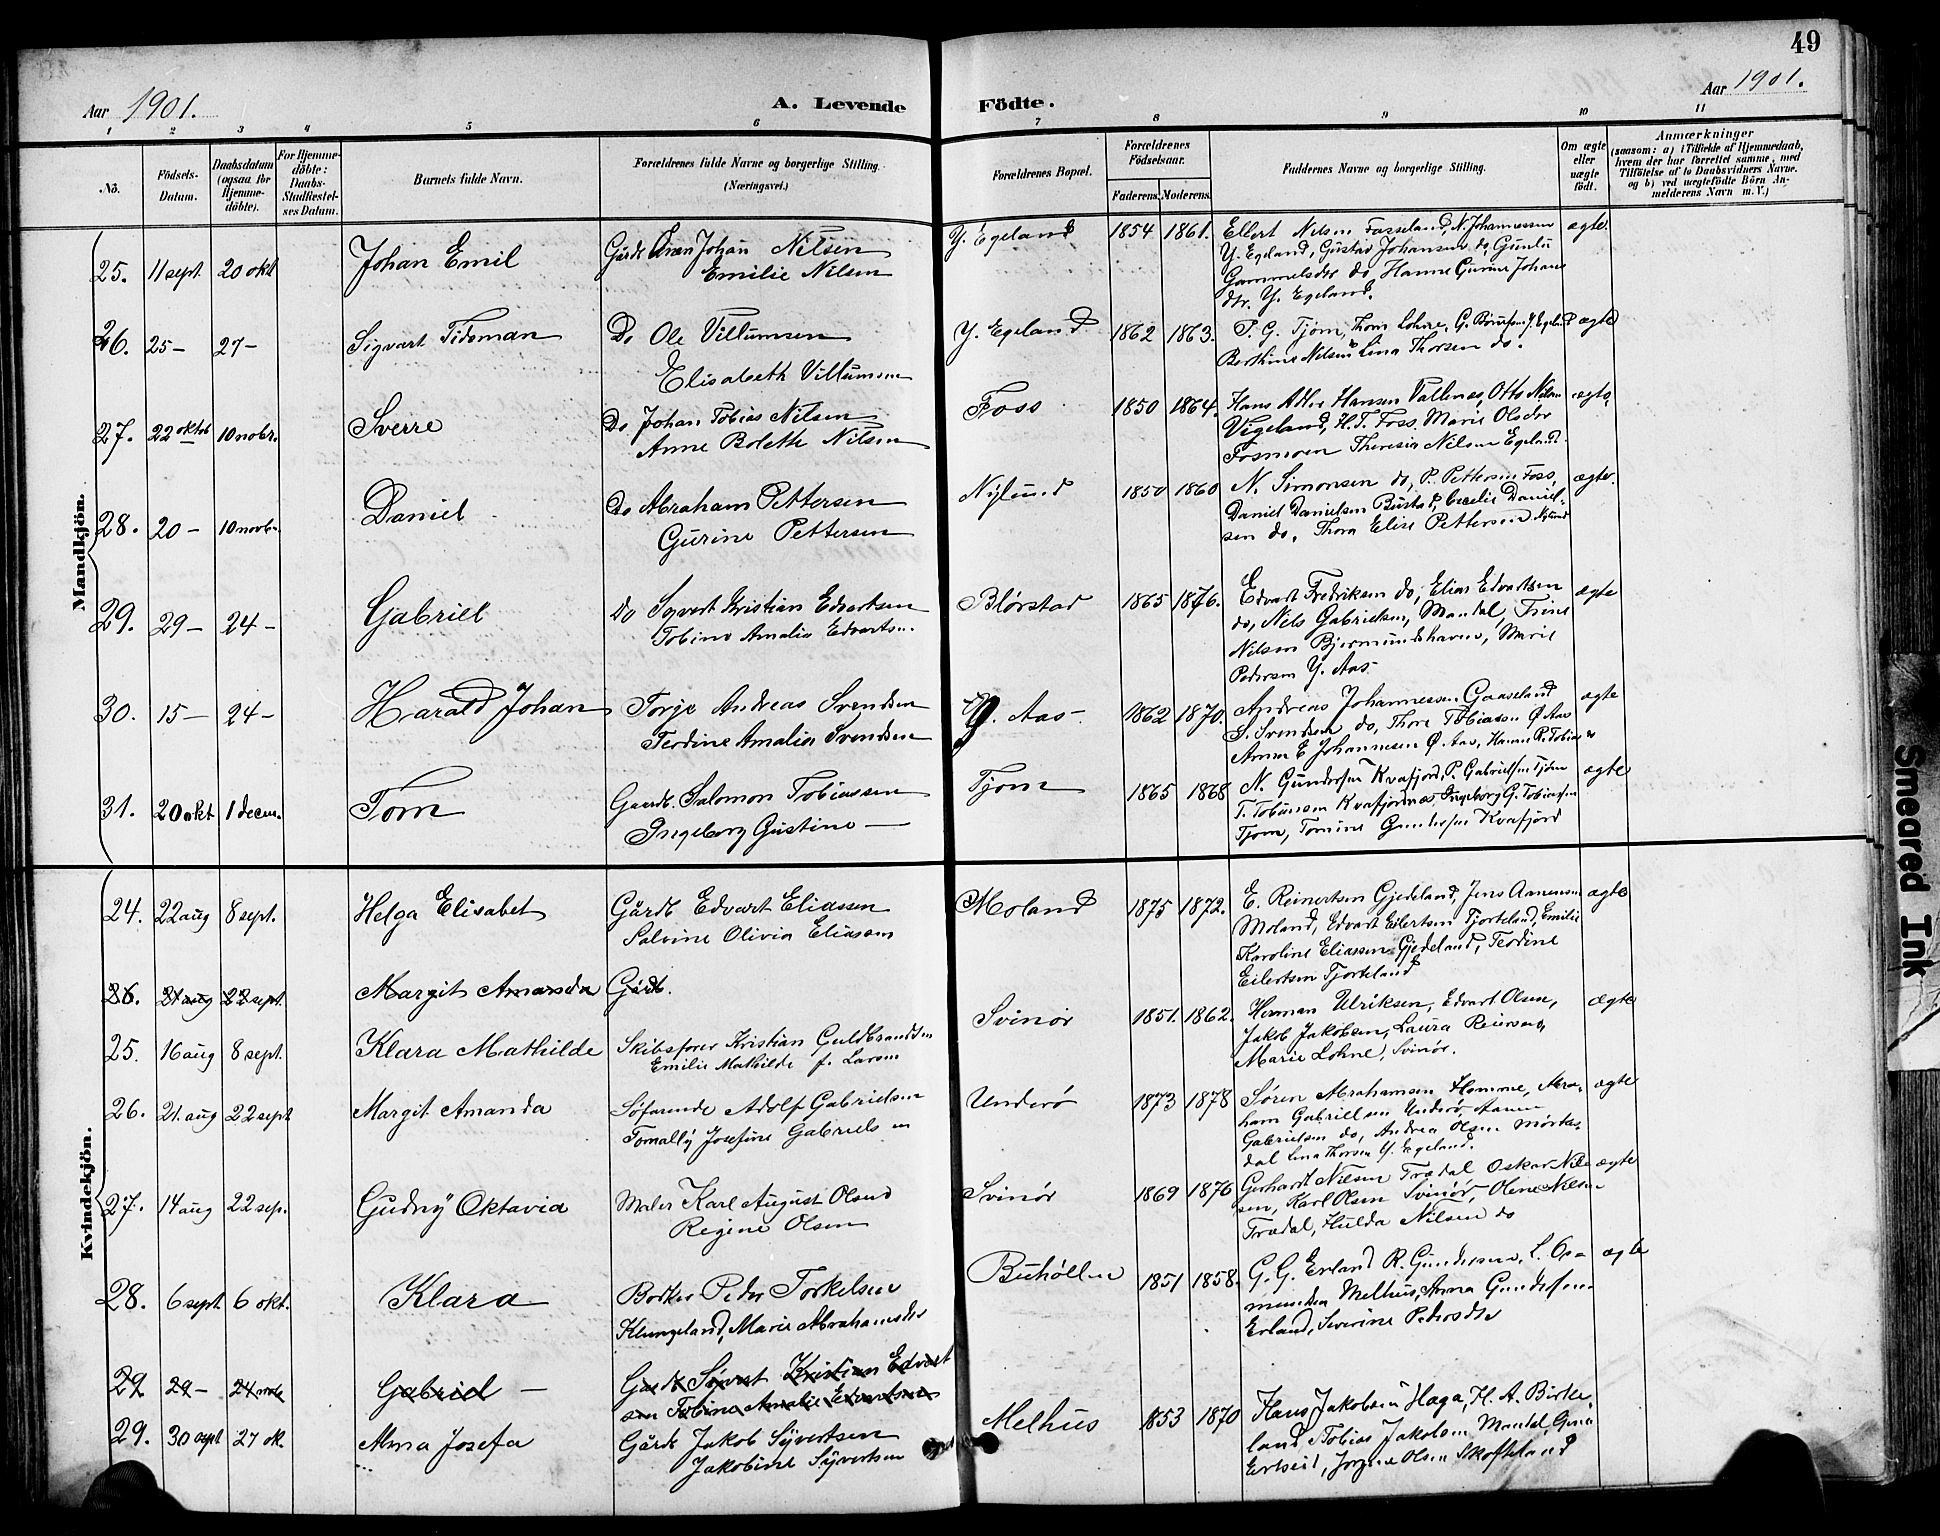 49
Aar 1901. A. Levende Födte. Aar 1901.
1 2 3 4 5 6 7 8 9 10 11
No.
Födsels-
Datum.
Daabsdatum
(ogsaa for
Hjemme-
döbte).
For Hjemme-
döbte:
Daabs-
Stadfæstel-
ses Datum.
Barnets fulde Navn.
Forældrenes fulde Navne og borgerlige Stilling.
(Næringsvei.)
Forældrenes Bopæl.
Forældrenes
Födselsaar.
Faderens. Moderens.
Faddernes Navne og borgerlige Stilling.
Om ægte
eller
uægte
født.
Anmærkninger
(saasom: a) i Tilfælde af Hjemmedaab,
hvem der har forrettet samme, med
Tilföielse af to Daabsvidners Navne.
og b) ved uægtefödte Börn An-
melderens Navn m. V.)
Mandkjön.
25. 11 sept. 20 okt Johan Emil Gårdb. Johan Nilsen
Emilie Nilsen
Y. Egeland 1854 1861. Ellert Nilsen Fasseland, N. Johannessen ægte.
Y. Egeland, Gustav Johansen do, Gunil
Gammelsdtr do, Hanne Gurine Johans
dtr. Y. Egeland.
26. 25- 27- Sigvart Tideman Do Ole Villumsen
Elisabeth Villumsen
Y. Egeland 1862 1863. P. G. Tjom, Thom Lohne, G. Y. Egeland ægte
Berthine Nilsen Lina Thorsen do.
27. 22 oktob 10 nobr. Sverre Do Johan Tobias Nilsen
Anne Bolette Nilsen
Foss 1850 1864. Hans Adler Hansen Vallenæs, Otto Nilsen ægte,
Vigeland, H. T. Foss. Marie Olsdtr
Fosmoen Theresia Nilsen Egeland.
28. 20- 10 novb. Daniel Do Abraham Pettersen
Gurine Pettersen
Nylund 1850 1860 N. Simonsen do, P. Pettersen Foss, ægte.
Daniel Danielsen Bustad, Daniel-
sen do, Thora Elise Pettersen Nylund
29. 29- 24- Gabriel Do Syvert Kristian Edvartsen
Tobine Amalia Edvartsen
Blörstad 1865 1876. Edvart Fredriksen do, Elias Edvartsen ægte
do, Nels Gabrielsen, Mandal, Trine
Nilsen Bjermundshavn, Marie
Pedersen Y. Aas
30. 15- 24- Harald Johan Torje Andreas Svendsen
Terdine Amalia Svendsen
Y. Aas 1862 1870. Andreas Johannessen Gaaseland ægte
S. Svendsen do, Thore Tobiassen Ø. Aas
Anna E Johannesen Ø. Aas, Hanne R. Tobias
31. 20 okt 1 decem. Tom Gaardb. Salomon Tobiassen
Ingeborg Gustine —
Tjom 1865 1868 N. Gundersen Kvafjord, P. Gabrielsen Tjom ægte
T. Tobiassen Kvafjordnæs, Ingeborg G. Tobiassen
Tjom, Tomine Gundersen Kvafjord
Kvindekjön.
24. 22 aug 8 sept. Helga Elisabet Gårdb Edvart Eliassen
Salvine Olivia Eliassen
Moland 1875 1872. E. Reinertsen Gjedeland, Jens Aanensen ægte
Moland, Edvart Eilertsen Tjorteland, Emilie
Karoline Eliassen Gjedeland, Teodine
Eilertsen Tjorteland
26. 21 aug 22 sept. Margit Amanda Gårdb.
25. 16 aug 8 sept. Klara Mathilde Skibsfører Kristian Guldbrandsen
Emilie Mathilde f. Larsen
Svinör 1851. 1862. Herman Ulriksen, Edvart Olsen, Ægte
Jakob Jakobsen, Laura Reiersen,
Marie Lohne, Svinör.
26. 21. aug 22 sept Margit Amanda Söfarende Adolf Gabrielsen
Tomally Josefine Gabrielsen
Underö 1873 1878 Sören Abrahamsen Homme, Abra- ægte
ham Gabrielsen Underö, Aanen
Gabrielsen do, Andrea Olsen Mörkes-
dal Lina Thorsen Y. Egeland.
27. 14 aug 22 sep. Gudny Oktavia Maler Karl August Olsen
Regine Olsen
Svinör 1869 1876 Gerhard Nilsen Trædal Oskar Nil- ægte
sen, Karl Olsen Svinör, Olene Nilsen
Trædal, Hulda Nilsen do
28. 6 sept 6 okt. Klara Bødker Peder Torkelsen
Klungeland, Marie Abrahamsdtr
Buhöllen 1851 1858. G. G. Erland R. Gundersen, L. Os- ægte
mundsen Melhus, Anna Gundersen
Erland, Severine Pedersdtr
29 29- 24 nov Gabriel — Gårdb Sivert Kristian Edvart
sen Tobine Amalie Edvartsen
29. 30 sept 27 ok. Alma Josefa Gårdb Jakob Syvertsen
Jakobine Syvertsen
Melhus 1853 1870 Hans Jakobsen Haga, H. A. Birke-
land Tobias Jakobsen Mandal, Gina
Ertseid, Jorgine Olsen Skofteland
Smeared Ink